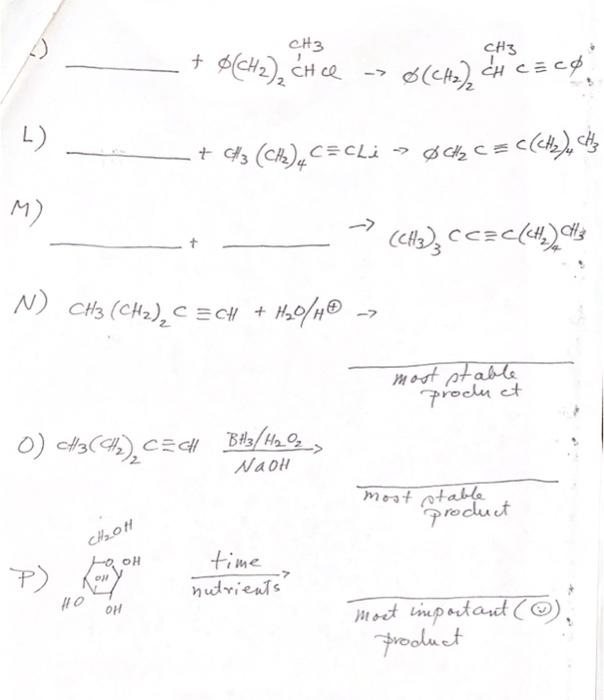 ) ______ + ⌀(CH2)2 CH(CH3) Cl -> ⌀(CH2)2 CH(CH3) C≡C⌀
L) ______ + CH3(CH2)4C≡CLi -> ⌀CH2C≡C(CH2)4CH3
M) ______ + ______ -> (CH3)3CC≡C(CH2)4CH3
N) CH3(CH2)2C≡CH + H2O/H⊕ ->
most stable
product
O) CH3(CH2)2C≡CH BH3/H2O2
NaOH
most stable
product
CH2OH
P) O OH time
OH nutrients
HO OH
most important (☺)
product